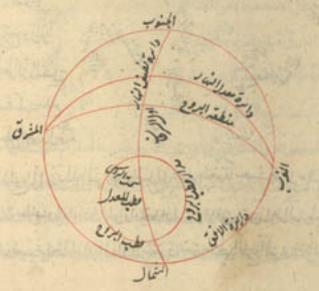 الجنوب
دائرة نصف النهار
دائرة معدل النهار
منطقة البروج
المشرق
المغرب
سمت الراس
قطب المعدل
قطب البروج
دائرة الافق
الشمال